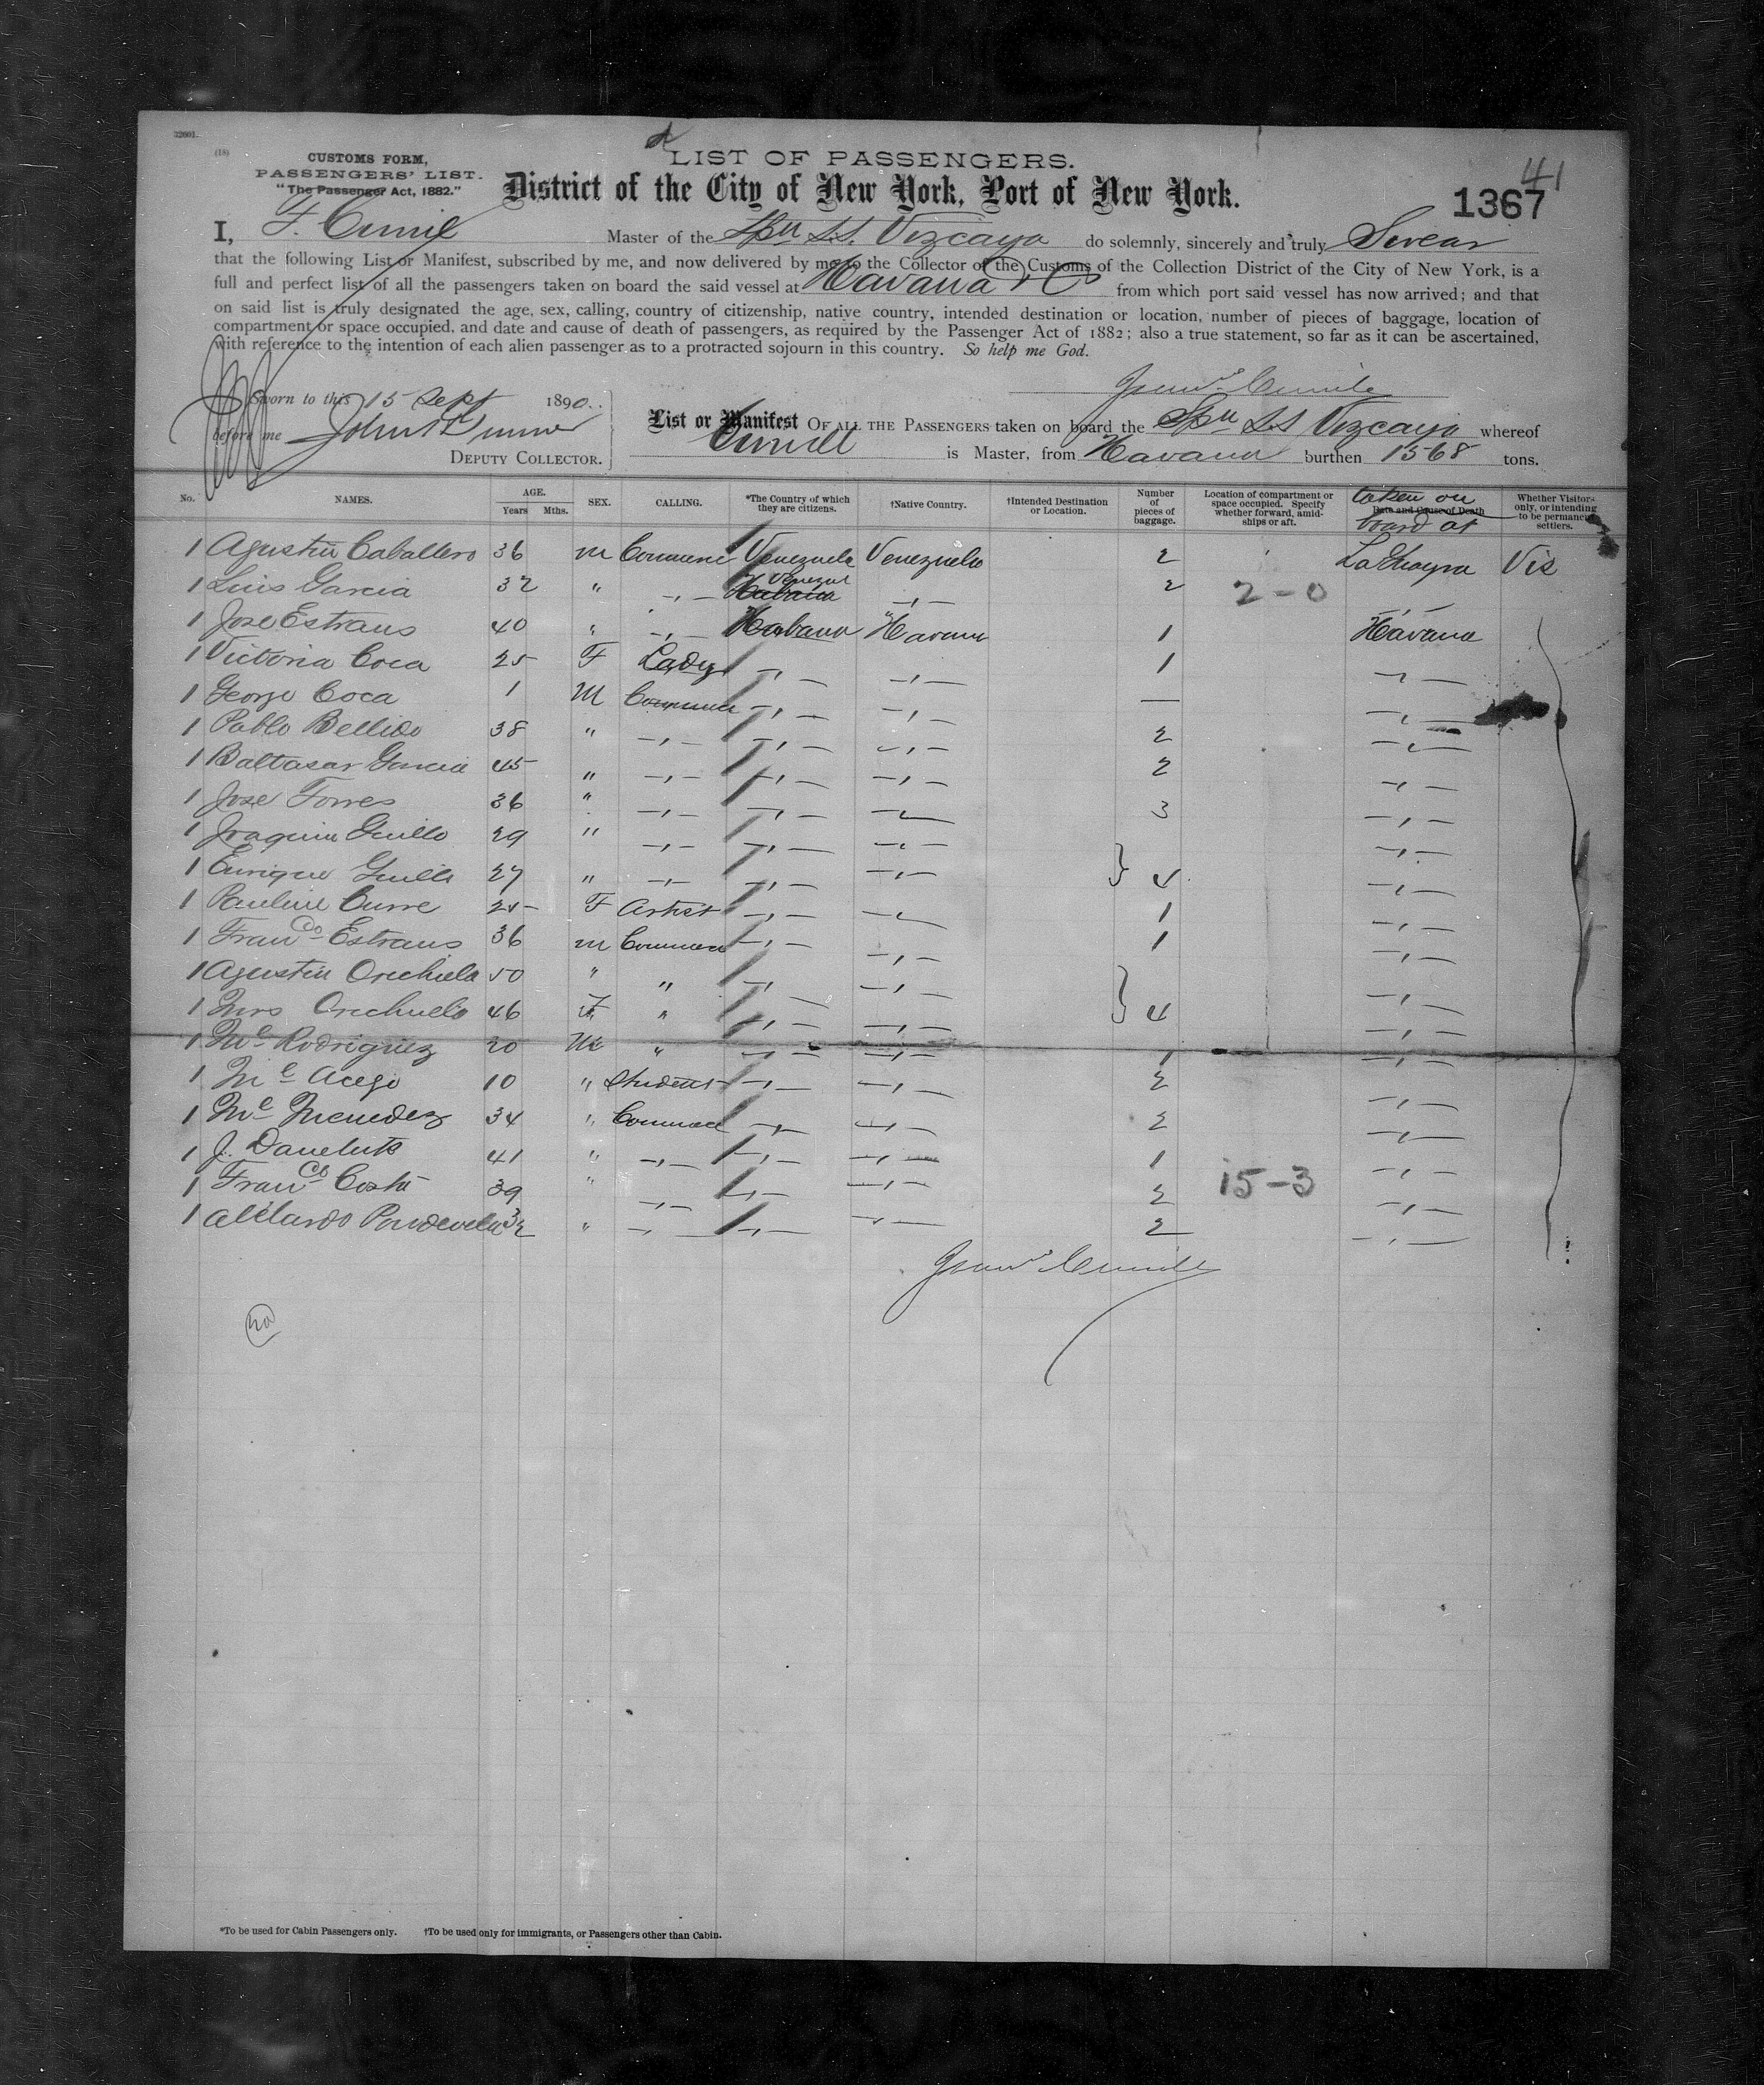 32001.
(18)
CUSTOMS FORM,
PASSENGERS' LIST.
"The Passenger Act, 1882."
LIST OF PASSENGERS.
District of the City of New York, Port of New York.
41
1367
I, F. Cunill Master of the Spn SS. Vizcaya do solemnly, sincerely and truly Swear
that the following List or Manifest, subscribed by me, and now delivered by me to the Collector of the Customs of the Collection District of the City of New York, is a
full and perfect list of all the passengers taken on board the said vessel at Havana from which port said vessel has now arrived; and that
on said list is truly designated the age, sex, calling, country of citizenship, native country, intended destination or location, number of pieces of baggage, location of
compartment or space occupied, and date and cause of death of passengers, as required by the Passenger Act of 1882; also a true statement, so far as it can be ascertained,
with reference to the intention of each alien passenger as to a protracted sojourn in this country. So help me God.
Sworn to this 15 Sept 1890.
before me John
DEPUTY COLLECTOR.
List or Manifest OF ALL THE PASSENGERS taken on board the Spn SS Vizcaya whereof
Cunill is Master, from Havana burthen 1568 tons.
No. NAMES. AGE. Years Mths. SEX. CALLING. *The Country of which they are citizens. †Native Country. †Intended Destination or Location. Number of pieces of baggage. Location of compartment or space occupied. Specify whether forward, amidships or aft. Date and Cause of Death taken on board at Whether Visitors only, or intending to be permanent settlers.
1 Agustin Caballero 36 M Commerc Venezuela Venezuela 2 La Guayra Vis
1 Luis Garcia 32 " -,- Habana Venezul -,- 2 2-0
1 Jose Estraus 40 " -,- Habana Havana 1 Havana
1 Victoria Coca 25 F Lady -,- -,- 1 -,-
1 George Coca 1 M Commerc -,- -,- — -,-
1 Pablo Bellido 38 " -,- -,- -,- 2 -,-
1 Baltasar Garcia 45 " -,- -,- -,- 2 -,-
1 Jose Torres 36 " -,- -,- -,- 3 -,-
1 Joaquin Guillo 29 " -,- -,- -,- -,-
1 Enrique Guillo 27 " -,- -,- -,- } 4 -,-
1 Pauline Curre 25 F Artist -,- -,- 1 -,-
1 Franco Estraus 36 M Commerc -,- -,- 1 -,-
1 Agustin Orichuela 50 " " -,- -,- -,-
1 Mrs Orichuela 46 F " -,- -,- } 4 -,-
1 Ml Rodriguez 20 M " -,- -,- 1 -,-
1 Ml Acego 10 " Student -,- -,- 2 -,-
1 Ml Menedez 34 " Commerc -,- -,- 2 -,-
1 J. 41 " -,- -,- -,- 1 -,-
1 Franco Costa 39 " -,- -,- -,- 2 15-3 -,-
1 32 " -,- -,- -,- 2 -,-
Cunill
20
*To be used for Cabin Passengers only. †To be used only for immigrants, or Passengers other than Cabin.